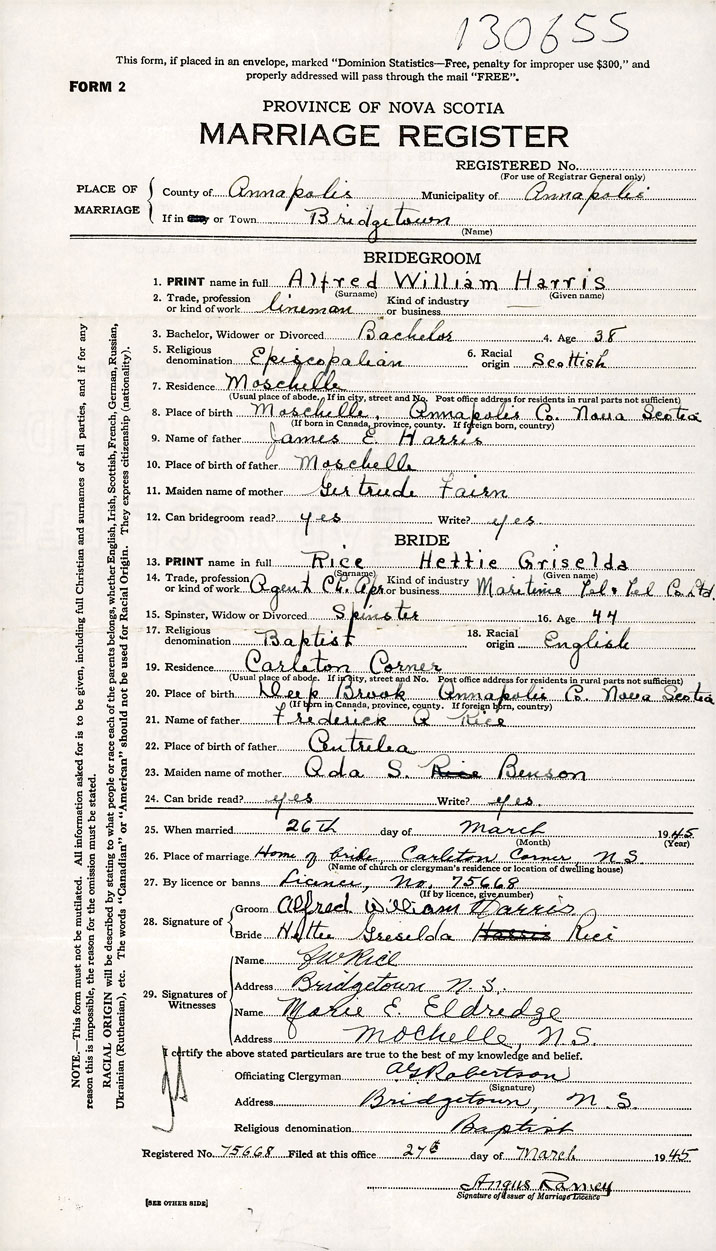 130655
This form, if placed in an envelope, marked "Dominion Statistics—Free, penalty for improper use $300," and
properly addressed will pass through the mail "FREE".
FORM 2
PROVINCE OF NOVA SCOTIA
MARRIAGE REGISTER
REGISTERED No.
(For use of Registrar General only)
PLACE OF MARRIAGE
County of Annapolis Municipality of Annapolis
If in City or Town Bridgetown
(Name)
BRIDEGROOM
1. PRINT name in full Alfred William Harris
(Surname) (Given name)
2. Trade, profession or kind of work lineman Kind of industry or business
3. Bachelor, Widower or Divorced Bachelor 4. Age 38
5. Religious denomination Episcopalian 6. Racial origin Scottish
7. Residence Moschelle
(Usual place of abode. If in city, street and No. Post office address for residents in rural parts not sufficient)
8. Place of birth Moschelle, Annapolis Co. Nova Scotia
(If born in Canada, province, county. If foreign born, country)
9. Name of father James E. Harris
10. Place of birth of father Moschelle
11. Maiden name of mother Gertrude Fairn
12. Can bridegroom read? yes Write? yes.
BRIDE
13. PRINT name in full Rice Hettie Griselda
(Surname) (Given name)
14. Trade, profession or kind of work Agent Ch. Opr Kind of industry or business Maritime Tel & Tel Co. Ltd.
15. Spinster, Widow or Divorced Spinster 16. Age 44
17. Religious denomination Baptist 18. Racial origin English
19. Residence Carleton Corner
(Usual place of abode. If in city, street and No. Post office address for residents in rural parts not sufficient)
20. Place of birth Deep Brook Annapolis Co. Nova Scotia
(If born in Canada, province, county. If foreign born, country)
21. Name of father Frederick Rice
22. Place of birth of father Centrelea
23. Maiden name of mother Ada S. Rice Benson
24. Can bride read? yes Write? yes.
25. When married 26th day of March 1945
(Month) (Year)
26. Place of marriage Home of bride, Carleton Corner, N.S.
(Name of church or clergyman's residence or location of dwelling house)
27. By licence or banns Licence, No. 75668
(If by licence, give number)
28. Signature of
Groom Alfred William Harris
Bride Hettie Greselda Harris Rice
29. Signatures of Witnesses
Name Rice
Address Bridgetown N.S.
Name Marie E. Eldredge
Address Mochelle, N.S.
I certify the above stated particulars are true to the best of my knowledge and belief.
Officiating Clergyman Robertson
(Signature)
Address Bridgetown, N.S.
Religious denomination Baptist
Registered No. 75668 Filed at this office 27th day of March 1945
Angus Ramey
Signature of Issuer of Marriage Licence
[SEE OTHER SIDE]
NOTE.—This form must not be mutilated. All information asked for is to be given, including full Christian and surnames of all parties, and if for any
reason this is impossible, the reason for the omission must be stated.
RACIAL ORIGIN will be described by stating to what people or race each of the parents belongs, whether English, Irish, Scottish, French, German, Russian,
Ukrainian (Ruthenian), etc. The words "Canadian" or "American" should not be used for Racial Origin. They express citizenship (nationality).